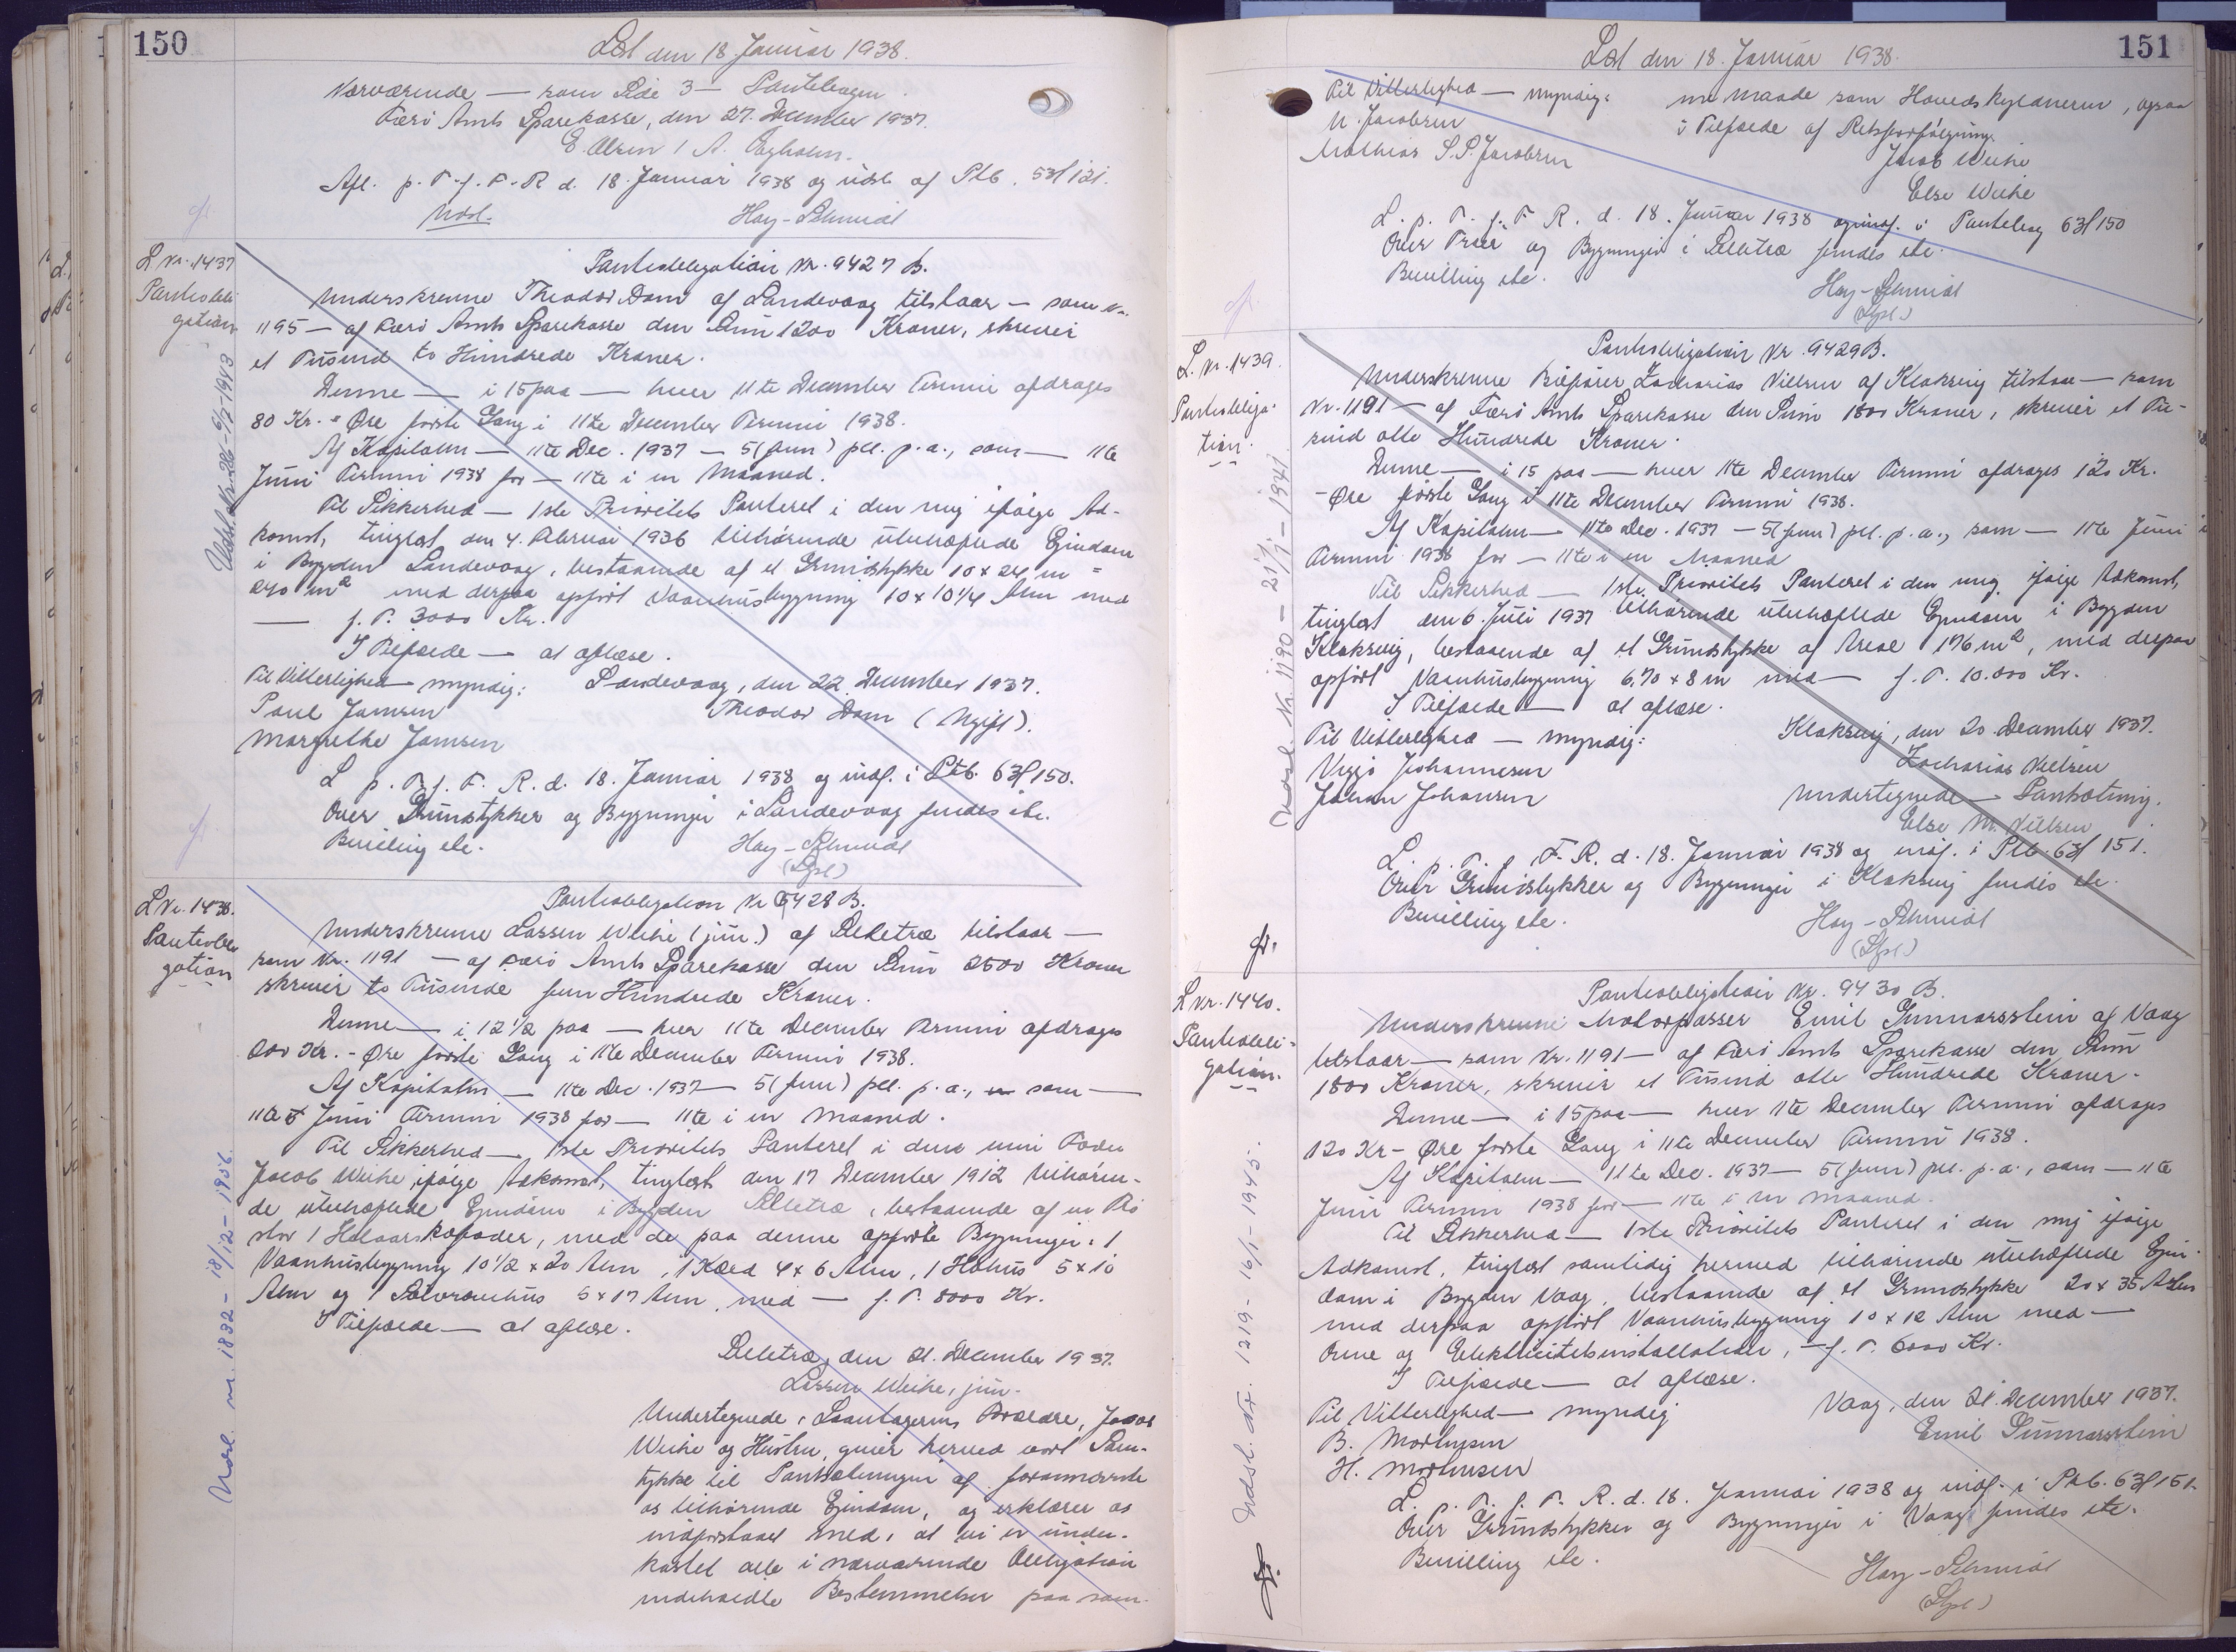 150
Læst den 18. Januar 1938.
Nærværende — som Side 3 — Pantebogen.
Færø Amts Sparekasse, den 27. December 1937.
E. Olsen / A.
Afl. p. T. f. F. R. d. 18. Januar 1938 og udsl. af Ptb. 53/121.
Udsl. Hay-Schmidt
L. Nr. 1437
Panteobli-
gation
Udsl. Nr. 26 - 6/7 - 1943
Panteobligation Nr. 9427 B.
Underskrevne Theodor Dam af Sandevaag tilstaar — som Nr.
1195 — af Færø Amts Sparekasse den Sum 1200 Kroner, skriver
et Tusind to Hundrede Kroner.
Denne — i 15 paa — hver 11te December Termin afdrages
80 Kr. - Øre første Gang i 11te December Termin 1938.
Af Kapitalen — 11te Dec. 1937 — 5 (fem) pct. p.a., som — 11te
Juni Termin 1938 for — 11te i en Maaned.
Til Sikkerhed — 1ste Prioritets Panteret i den mig ifølge Ad-
komst, tinglæst den 4. Februar 1936 tilhørende ubehæftede Ejendom
i Bygden Sandevaag, bestaaende af et Grundstykke 10 x 24 m =
240 m² med derpaa opført Vaanhusbygning 10 x 10 1/4 Alen med
— f. T. 3000 Kr.
I Tilfælde — at aflæse.
Til Vitterlighed — myndig: Sandevaag, den 22. December 1937.
Poul Jensen Theodor Dam (Ugift).
Margrethe Jensen
L. p. T. f. F. R. d. 18. Januar 1938 og indf. i Ptb. 63/150.
Over Grundstykker og Bygninger i Sandevaag findes etc.
Bevilling etc. Hay-Schmidt
(Lpsl)
L. Nr. 1438.
Panteobli
gation
Udsl. nr. 1832 - 18/12 - 1956.
Panteobligation Nr 9428 B.
Underskrevne Lassen Weihe (jun.) af Selletræ tilstaar —
som Nr. 1191 — af Færø Amts Sparekasse den Sum 2500 Kroner
skriver to Tusinde fem Hundrede Kroner.
Denne — i 12 1/2 paa — hver 11te December Termin afdrages
200 Kr. - Øre første Gang i 11te December Termin 1938.
Af Kapitalen — 11te Dec. 1937 — 5 (fem) pct. p.a., som —
11te Juni Termin 1938 for — 11te i en Maaned.
Til Sikkerhed — 1ste Prioritets Panteret i den min Fader
Jacob Weihe ifølge Adkomst, tinglæst den 17 December 1912 tilhøren-
de ubehæftede Ejendom i Bygden Selletræ, bestaaende af en Trø
stor 1 Helaarskofoder, med de paa denne opførte Bygninger: 1
Vaanhusbygning 10 1/2 x 20 Alen, 1 Kæld 4 x 6 Alen, 1 Høhus 5 x 10
Alen og 1 5 x 17 Alen, med — f. T. 8000 Kr.
I Tilfælde — at aflæse.
Selletræ, den 21. December 1937.
Lassen Weihe, jun.
Undertegnede, Laantagerens Forældre, Jacob
Weihe og Hustru, giver herved vort Sam-
tykke til Pantsætningen af forannævnte
os tilhørende Ejendom, og erklærer os
indforstaaet med, at vi er under-
kastet alle i nærværende Obligation
indeholdte Bestemmelser paa sam-
151
Læst den 18. Januar 1938.
Til Vitterlighed — myndig: me Maade som Hovedskyldneren, ogsaa
N. Jacobsen i Tilfælde af Retsforfølgning.
Mathias S. P. Jacobsen Jacob Weihe
Else Weihe
L. p. T. f. F. R. d. 18. Januar 1938 og indf. i Pantebog 63/150
Over Trøer og Bygninger i Selletræ findes etc.
Bevilling etc. Hay-Schmidt
(Lpsl)
L. Nr. 1439.
Panteobliga-
tion.
Udsl. Nr. 1190 - 21/1 - 1941
Panteobligation Nr. 9429 B.
Underskrevne Bilfører Zacharias Nielsen af Klaksvig tilstaar — som
Nr. 1191 — af Færø Amts Sparekasse den Sum 1800 Kroner, skriver et Tu-
sind otte Hundrede Kroner.
Denne — i 15 paa — hver 11te December Termin afdrages 120 Kr.
- Øre første Gang i 11te December Termin 1938.
Af Kapitalen — 11te Dec. 1937 — 5 (fem) pct. p.a., som — 11te Juni
Termin 1938 for — 11te i en Maaned
Til Sikkerhed — 1ste Prioritets Panteret i den mig ifølge Adkomst,
tinglæst den 6. Juli 1937 tilhørende ubehæftede Ejendom i Bygden
Klaksvig, bestaaende af et Grundstykke af Areal 176 m², med derpaa
opført Vaanhusbygning 6.70 x 8 m med — f. T. 10.000 Kr.
I Tilfælde — at aflæse.
Til Vitterlighed — myndig: Klaksvig, den 20 December 1937.
Viggo Johannesen Zacharias Nielsen
Johan Johansen Undertegnede — Pantsætning.
Else M. Nielsen
L. p. T. f. F. R. d. 18. Januar 1938 og indf. i Ptb. 63/151.
Over Grundstykker og Bygninger i Klaksvig findes etc.
Bevilling etc. Hay-Schmidt
(Lpsl)
L. Nr. 1440.
Panteobli-
gation.
Udsl. Nr. 1219 - 16/1 - 1945.
Panteobligation Nr. 9430 B.
Underskrevne Motorpasser Emil Gunnarsstein af Vaag
tilstaar — som Nr. 1191 — af Færø Amts Sparekasse den Sum
1800 Kroner, skriver et Tusind otte Hundrede Kroner.
Denne — i 15 paa — hver 11te December Termin afdrages
120 Kr - Øre første Gang i 11te December Termin 1938.
Af Kapitalen — 11te Dec. 1937 — 5 (fem) pct. p.a., som — 11te
Juni Termin 1938 for — 11te i en Maaned.
Til Sikkerhed — 1ste Prioritets Panteret i den mig ifølge
Adkomst, tinglæst samtidig hermed tilhørende ubehæftede Ejen-
dom i Bygden Vaag, bestaaende af et Grundstykke 20 x 35 Alen
med derpaa opført Vaanhusbygning 10 x 12 Alen med —
Ovne og Elektricitetsinstallation, — f. T. 6000 Kr.
I Tilfælde — at aflæse.
Til Vitterlighed — myndig Vaag, den 21. December 1937.
B. Mortensen Emil Gunnarsstein
H. Mortensen
L. p. T. f. F. R. d. 18. Januar 1938 og indf. i Ptb. 63/151.
Over Grundstykker og Bygninger i Vaag findes etc.
Bevilling etc.
Hay-Schmidt
(Lpsl)